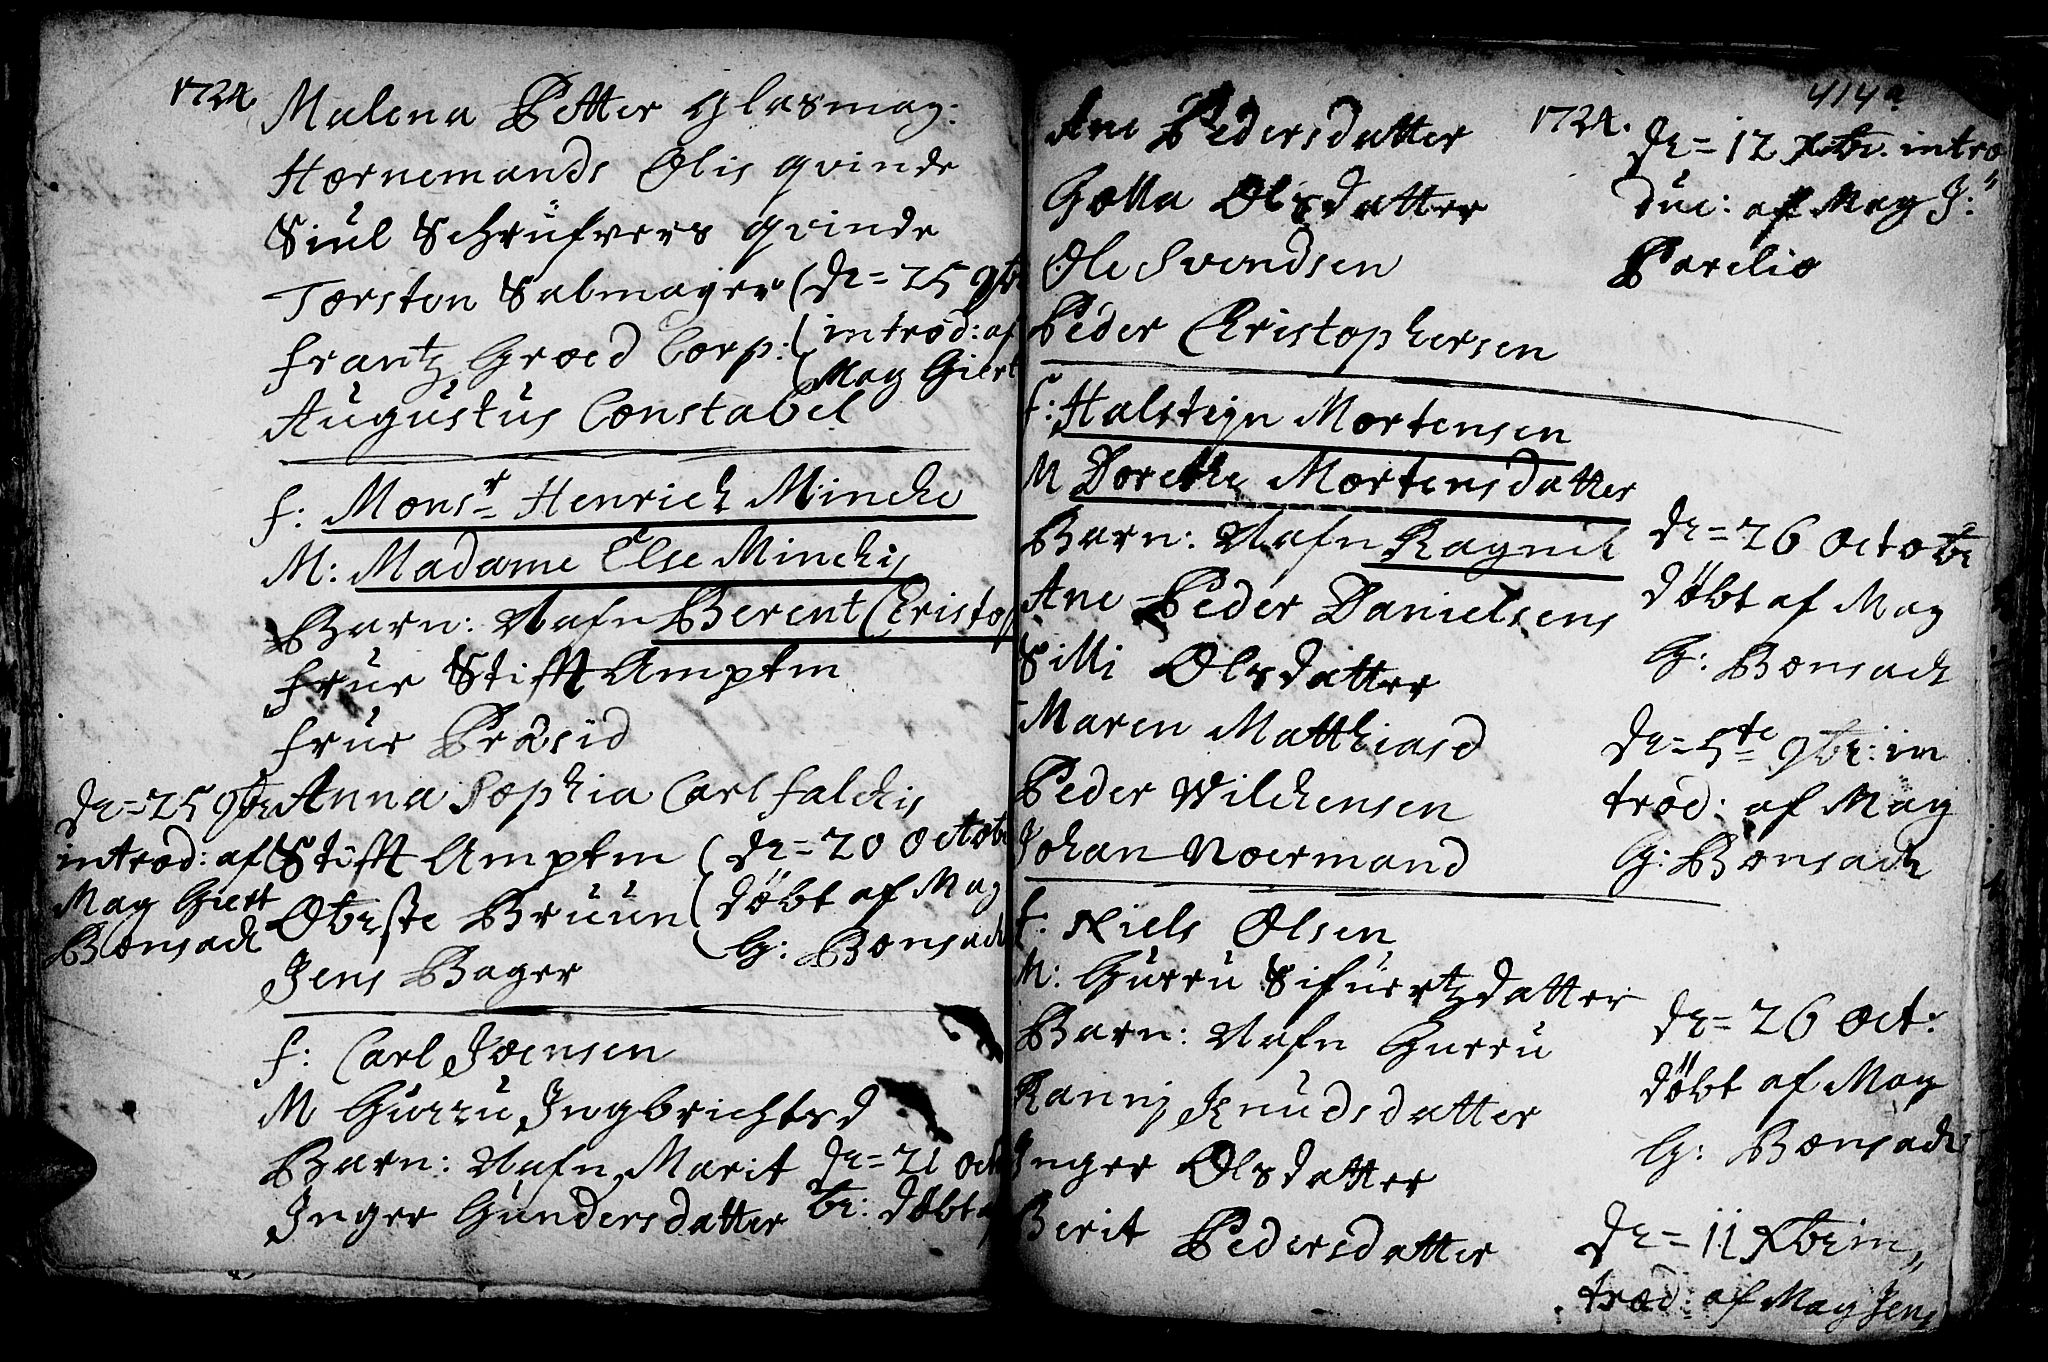 1724. Malena Petter Glasmag:
Hornemands Olis qvinde
Siul Schrüfvers qvinde
Torsten Salmager (dr=25 9br
Frantz Groed Corp: (introd: af
(Mag Giert
Augüstüs Constabel
f: Monsr Henrich Minche
M: Madame Else Minchis
Barn: Nafn Berent Christop
Frue Stifft Amptm
Frue Præsid
Anna Sophia Carl Falchis
dr=25 9br
introd: af
Mag Giert
Bonsach
Stifft Amptm (dr=20 Octob
Obriste Brüün (døbt af Mag
(G: Bonsach
Jens Bager
f: Carl Joensen
M Gurru Ingbrichtsd
Barn: Nafn Marit dr=21 Oct
Inger Gundersdatter br: døbt af
414a
1724.
Ane Pedersdatter
Golla Olsdatter
Ole Svendsen
Peder Christophersen
dr=12 Xbr. intro
duc: af Mag J:
Parelio
f: Halsteyn Mortensen
M Dorethe Mortensdatter
Barn: Nafn Ragnil
Ane Peder Danielsens
Silli Olsdatter
Maren Matthiasd
Peder Wilchensen
Johan Noermand
dr=26 Octobr
døbt af Mag
G: Bonsach
dr=5te 9br: in
trod: af Mag
G: Bonsach
f: Niels Olsen
M: Gurru Sifuertzdatter
Barn: Nafn Gurru
Ranni Knudsdatter
Inger Olsdatter
Berit Pedersdatter
dr=26 Oct:
døbt af Mag
G: Bonsach
dr=11 Xbr in
trod: af Mag Jens